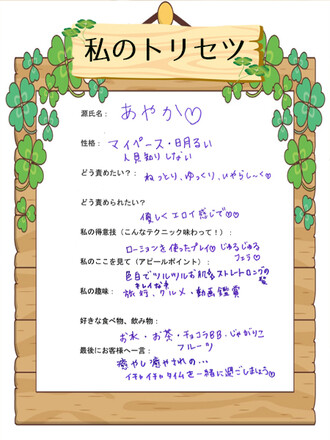 私のトリセツ
源氏名： あやか♡
性格： マイペース・明るい
人見知りしない
どう責めたい？： ねっとり、ゆっくり、いやらし〜く♡
どう責められたい？：
優しくエロイ感じで♡♡
私の得意技（こんなテクニック味わって！）：
ローションを使ったプレイ♡じゅるじゅる
フェラ♡
私のここを見て（アピールポイント）：
色白でツルツルお肌&ストレートロングの
キレイな髪
私の趣味： 旅行、グルメ・動画鑑賞
好きな食べ物、飲み物：
お水・お茶・チョコラBB、じゃがりこ
フルーツ
最後にお客様へ一言：
癒やし癒やされの...
イチャイチャタイムを一緒に過ごしましょう♡